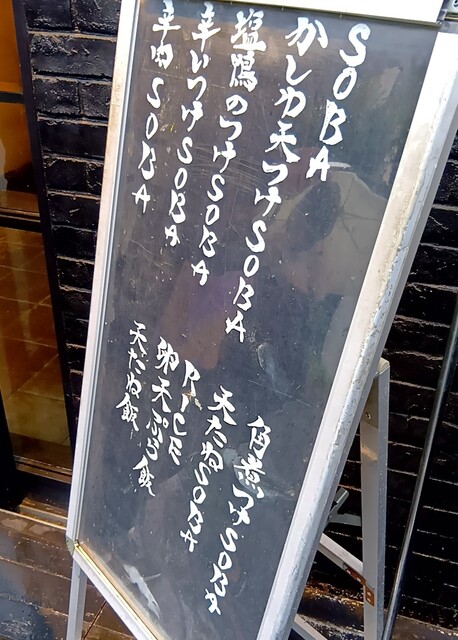 SOBA
かしわ天つけSOBA
塩鴨のつけSOBA
辛いつけSOBA
辛肉SOBA
角煮つけSOBA
天たねSOBA
RICE
卵天ぷら飯
天たね飯